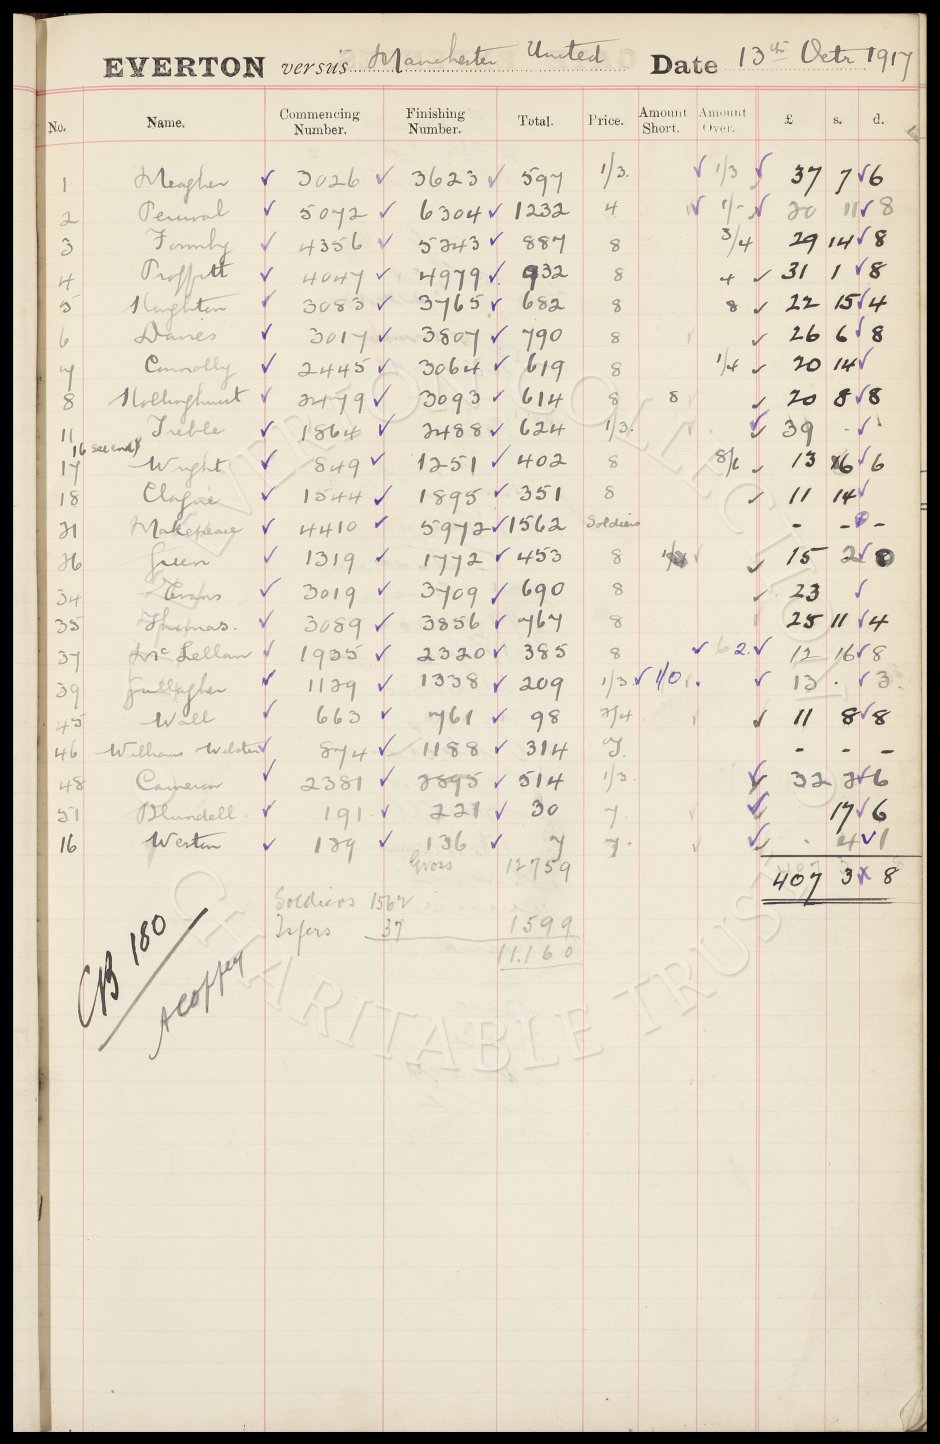 EVERTON versus Manchester United Date 13th Octr 1917
No. Name. Commencing Number. Finishing Number. Total. Price. Amount Short. Amount Over. £ s. d.
1 Meagher 3026 3623 597 1/3. 1/3 37 7 6
2 Percival 5072 6304 1232 4 1/- 20 11 8
3 Formby 4356 5243 887 8 3/4 29 14 8
4 Proffitt 4047 4979 932 8 4 31 1 8
5 Houghton 3083 3765 682 8 8 22 15 4
6 Davies 3017 3807 790 8 26 6 8
7 Connolly 2445 3064 619 8 1/4 20 14
8 Hollinghurst 2479 3093 614 8 8 20 8 8
11 Treble 1864 2488 624 1/3. 39 - -
16 second
17 Wright 849 1251 402 8 13 16 6
18 Clague 1544 1895 351 8 11 14
21 Makepeace 4410 5972 1562 Soldiers - - -
26 Green 1319 1772 453 8 15 2 8
34 Evans 3019 3709 690 8 23
35 Thomas. 3089 3856 767 8 25 11 4
37 McLellan 1935 2320 385 8 2. 12 16 8
39 Gallagher 1129 1338 209 1/3 1/0 13 . 3.
45 Wall 663 761 98 2/4 11 8 8
46 Williams 874 1188 314 7. - - -
48 Cameron 2381 2895 514 1/3. 32 2 6
51 Blundell. 191 221 30 7. 17 6
16 Weston 129 136 7 7. 4 1
Gross 12759 407 3 8
Soldiers 1562
Tsfers 37 1599
11.160
CB 180
EVERTON COLLECTION
CHARITABLE TRUST